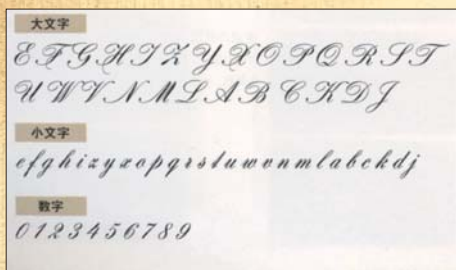 大文字
E F G H I Z Y X O P Q R S T
U W V N M L A B C K D J
小文字
e f g h i z y x o p q r s t u w v n m l a b c k d j
数字
0 1 2 3 4 5 6 7 8 9